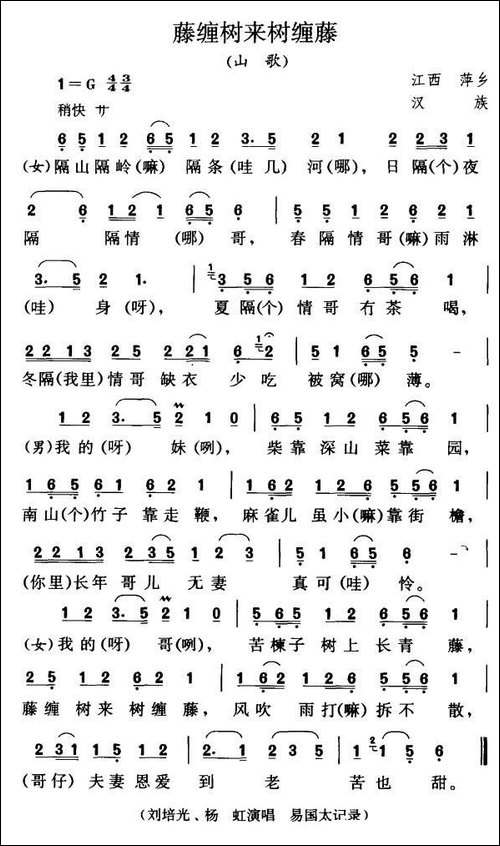 藤缠树来树缠藤
(山 歌)
1=G 4/4 3/4 江西 萍乡
稍快 サ 汉 族
6 5 1 2 6 5 | 1 2 3. 5 2 | 1 2 2 2 3 1
(女)隔山隔岭(嘛) 隔条(哇几) 河(哪), 日 隔(个)夜
2 6 1 2 1 6 5 6 | 5 5 1 2 6 2 1
隔 隔情 (哪) 哥, 春隔情哥(嘛)雨淋
3. 5 2 1. | 3 5 6 1 2 6 5 6 1 |
(哇) 身(呀), 夏隔(个)情哥 冇茶 喝,
2 2 1 3 2 5 2 2 1 6 2 | 5 1 6 5 5 - |
冬隔(我里)情哥 缺衣 少吃 被窝(哪) 薄。
1 2 3. 5 2 1 0 | 6 5 1 2 6 5 6 1 |
(男)我的(呀) 妹(咧), 柴靠深山菜靠 园,
1 6 5 6 1 6 2 1 | 1 6 2 1 2 6 5 6 1 |
南山(个)竹子靠走鞭, 麻雀儿虽小(嘛)靠街檐,
2 2 1 3 2 3 5 1 2 3 | 5 1 6 5 6 - |
(你里)长年哥儿 无妻 真可(哇) 怜。
1 2 3. 5 2 1 0 | 5 6 5 1 2 6 5 6 1 |
(女)我的(呀) 哥(咧), 苦楝子树上长青 藤,
2 5 1 2 6 2 1 | 1 6 2 1 2 6 5 6 1 |
藤缠树来树缠藤, 风吹 雨打(嘛)拆不 散,
2 3 1 5 5 1 2 | 2. 1 2. 3 | 2 1 5 |
(哥仔) 夫妻恩爱到 老 苦也 甜。
(刘培光、杨 虹演唱 易国太记录)